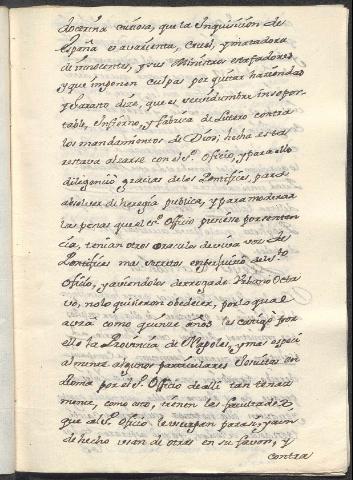 doctrina curiosa, que la Inquisicion de
España es avarienta, Cruel, y matadora
de innocentes, y sus Ministros estafadores
y que imponen culpas por quitar haziendas
y Barasto dize, que es servidumbre insopor
table, Infierno, y fabrica de Lutero contra
los mandamientos de Dios; hecha esta
restava alzarse con el S.º Oficio, y para ello
diligenció gracias de los Pontifices, para
absolver de heregia publica, y para moderar
las penas que el S.to Officio pusiesse por senten
cia, tenian otros oraculos de viva voz de
Pontifices mas secretos en perjuicio del S.to
Oficio, y aviendolos derogado Urbano Octa
vo, no lo quisieron obedecer, por lo qual
avrá como quinze años les castigó por
ello la Provincia de Napoles, y mas especi
almente algunos particulares Jesuitas en
Roma por el S.º Officio de alli tan tenaz
mente, como esto, tienen las facultades,
que al S.º Oficio le usurpan para si, y aun
de hecho usan de otras en su favor, y
contra